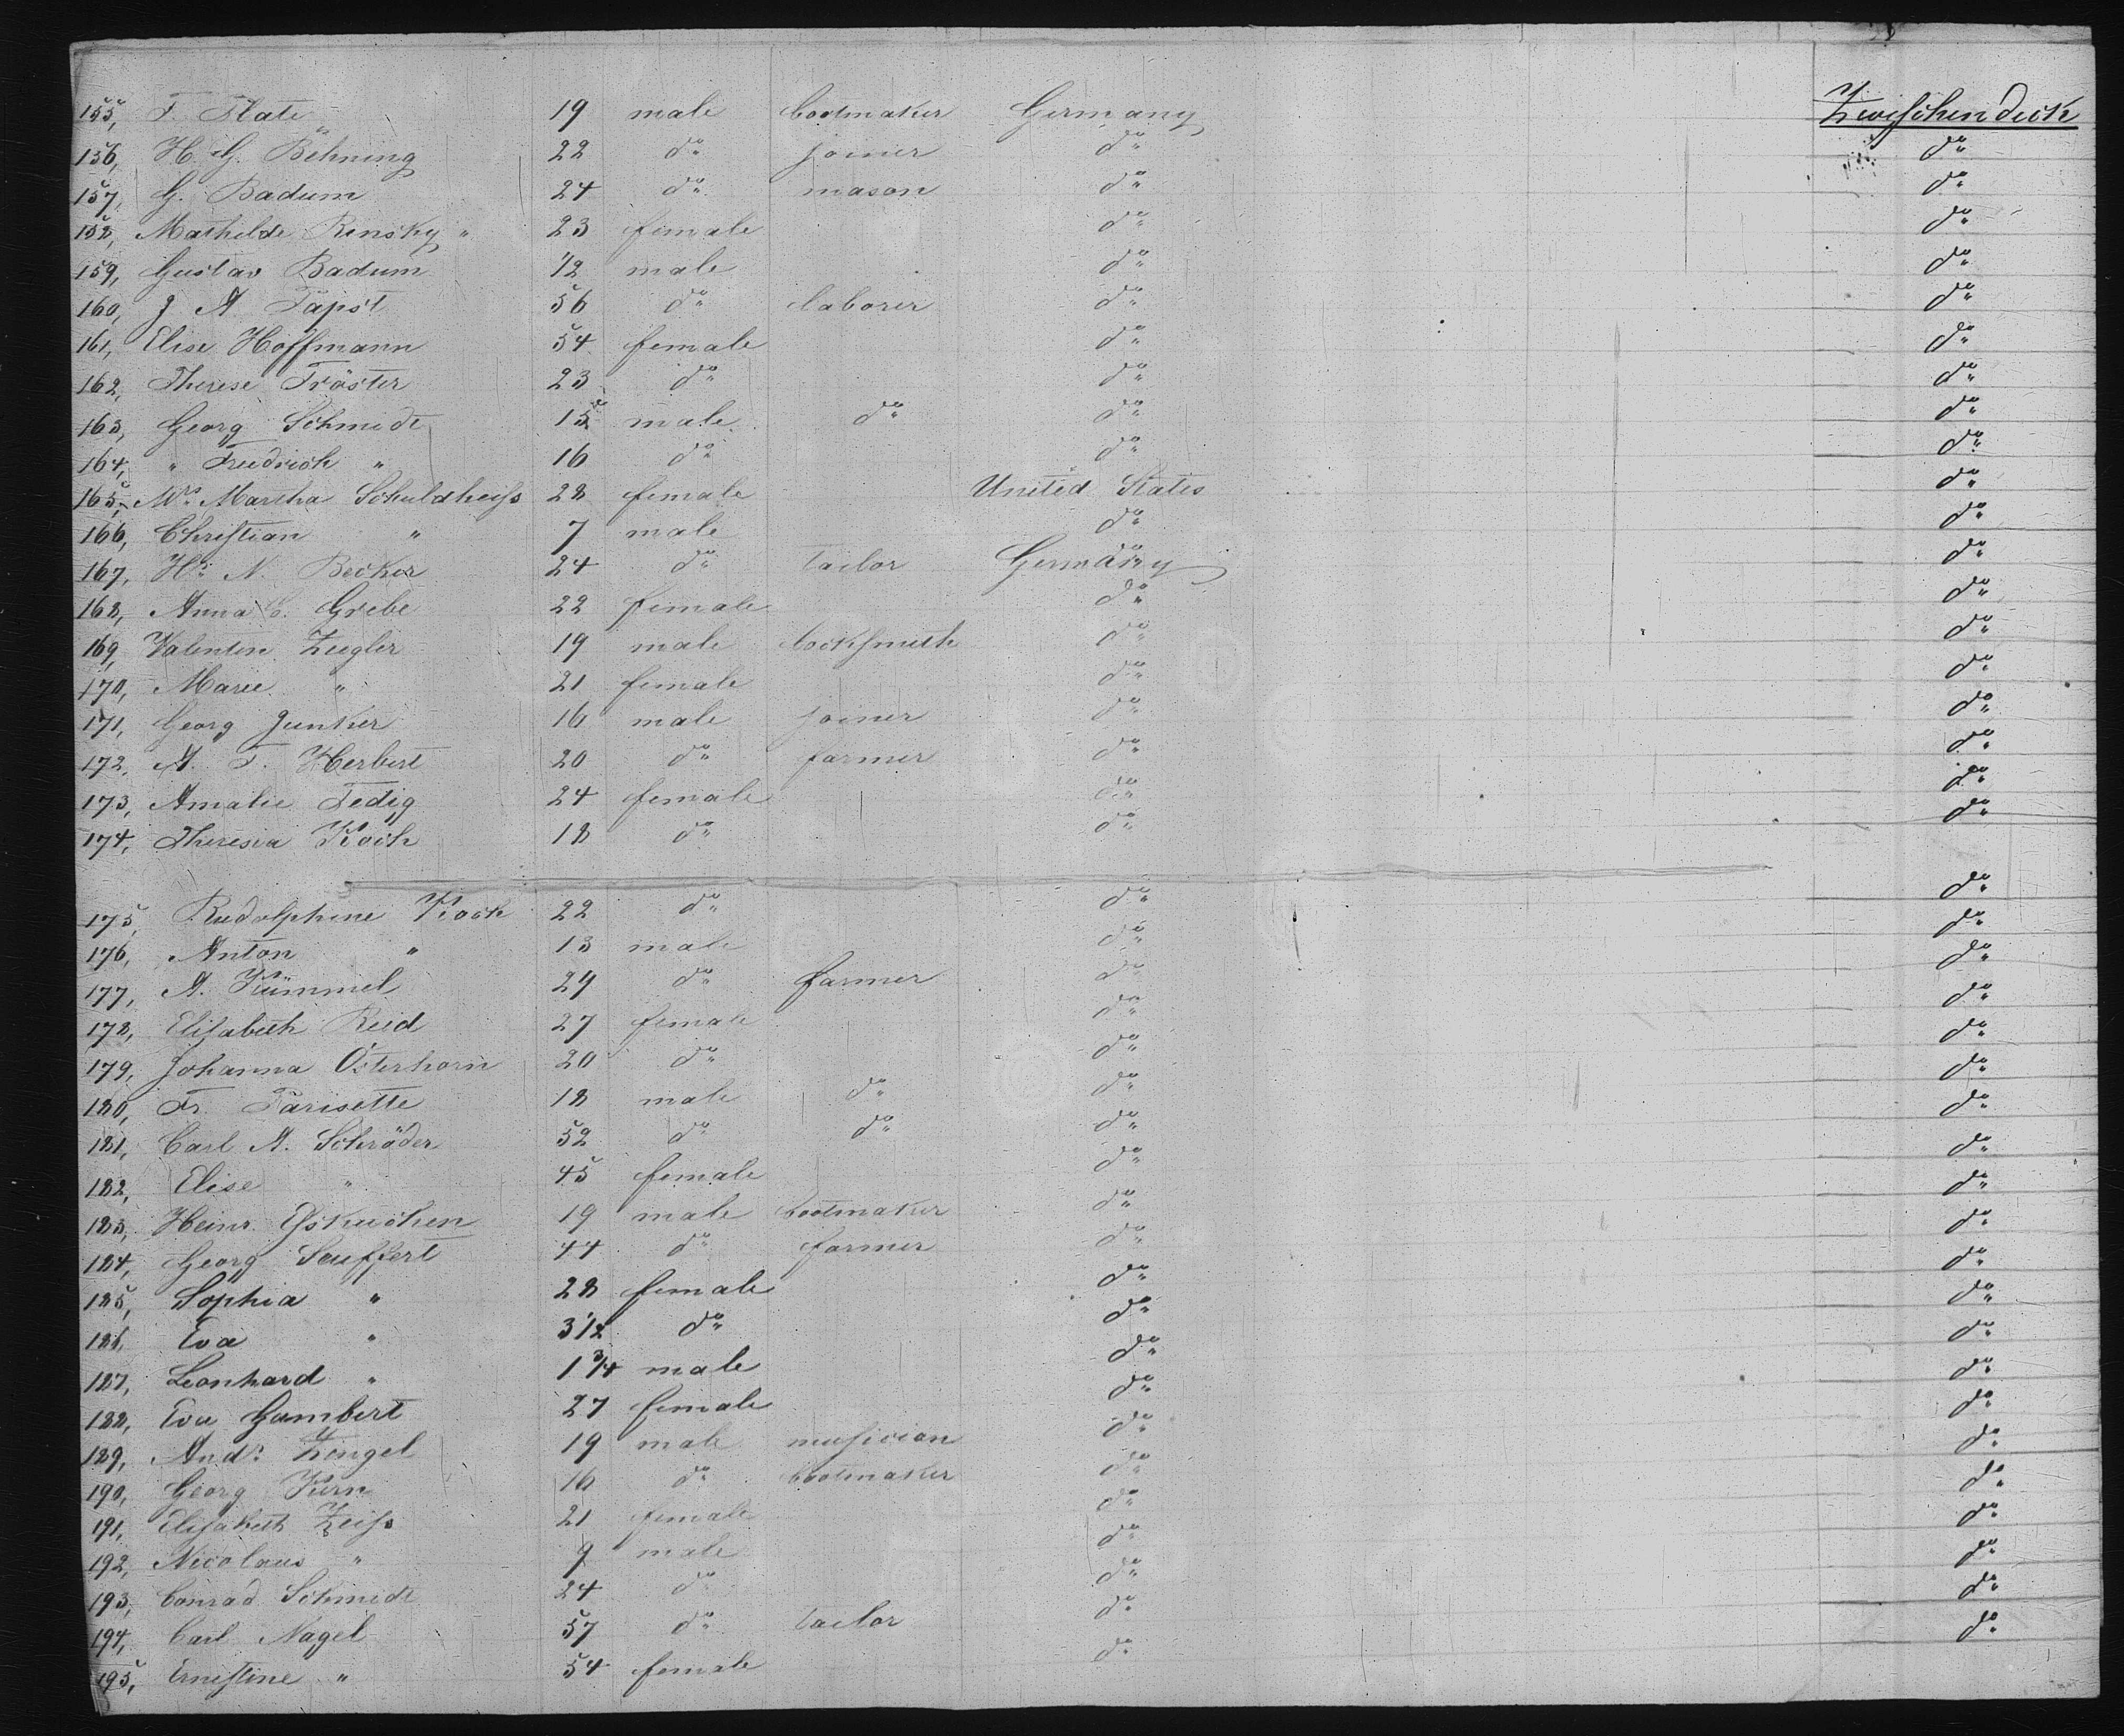 155, F. Plate 19 male bootmaker Germany Zwischendeck
156, H. G. Böhning 22 do joiner do do
157, G. Badum 24 do mason do do
158, Mathilde Rensky " 23 female do do
159, Gustav Badum 1/2 male do do
160, J A Papst 56 do laborer do do
161, Elise Hoffmann 54 female do do
162, Therese Tröster 23 do do do
163, Georg Schmidt 15 male do do do
164, " Friedrich " 16 do do do
165, Mrs Martha Schuldheiss 28 female United States do
166, Christian " 7 male do do
167, Hr. N. Becker 24 do tailor Germany do
168, Anna C. Grebe 22 female do do
169, Valentin Ziegler 19 male locksmith do do
170, Marie " 21 female do do
171, Georg Junker 16 male joiner do do
172, A. F. Herbert 20 do farmer do do
173, Amalie Fedig 24 female do do
174, Theresia Koch 18 do do do
175, Rudolphine Koch 22 do do do
176, Anton " 13 male do do
177, A. Kümmel 29 do farmer do do
178, Elisabeth Reid 27 female do do
179, Johanna Osterhorn 20 do do do
180, Fr. Parisette 18 male do do do
181, Carl A. Schröder 52 do do do do
182, Elise " 45 female do do
183, Heinr. Esskuchen 19 male bootmaker do do
184, Georg Seuffert 44 do farmer do do
185, Sophia " 28 female do do
186, Eva " 3 1/2 do do do
187, Leonhard " 1 3/4 male do do
188, Eva Gambert 27 female do do
189, Andr. Zingel 19 male musician do do
190, Georg Kern 16 do bootmaker do do
191, Elisabeth Zeiss 21 female do do
192, Nicolaus " 9 male do do
193, Conrad Schmidt 24 do do do
194, Carl Nagel 57 do tailor do do
195, Ernestine " 54 female do